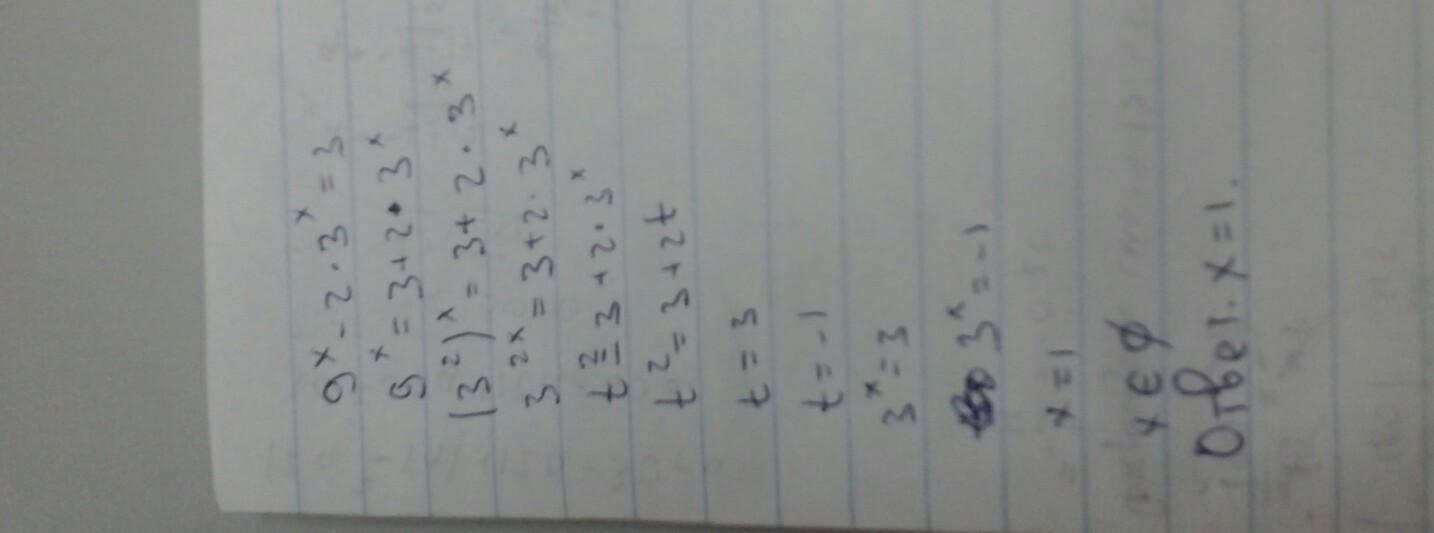 9ˣ - 2 · 3ˣ = 3
9ˣ = 3 + 2 · 3ˣ
(3²)ˣ = 3 + 2 · 3ˣ
3²ˣ = 3 + 2 · 3ˣ
t² = 3 + 2 · 3ˣ
t² = 3 + 2t
t = 3
t = -1
3ˣ = 3
3ˣ = -1
x = 1
x ∈ ∅
Ответ. x = 1.